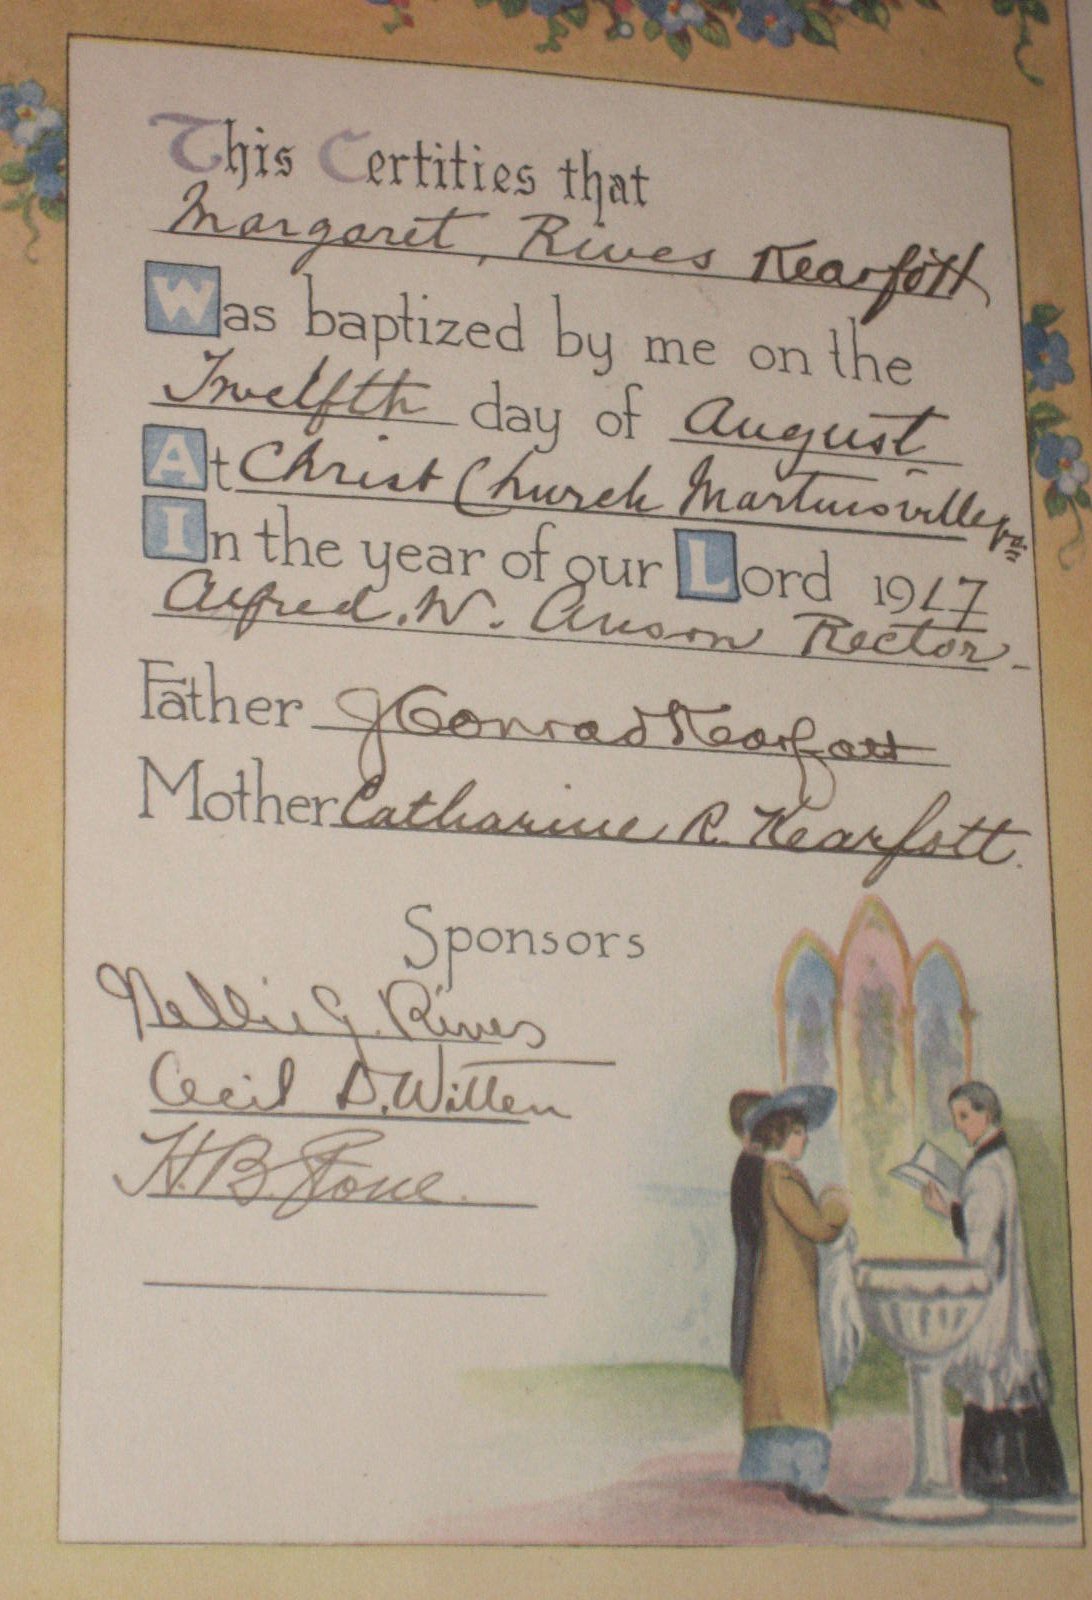 This Certifies that
Margaret, Rives Kearfott
Was baptized by me on the
Twelfth day of August
At Christ Church Martinsville Va.
In the year of our Lord 1917
Alfred. W. Anson Rector-
Father J Conrad Kearfott
Mother Catharine R. Kearfott.
Sponsors
Nellie J. Rives
Cecil D. Witten
H. B. Stone.